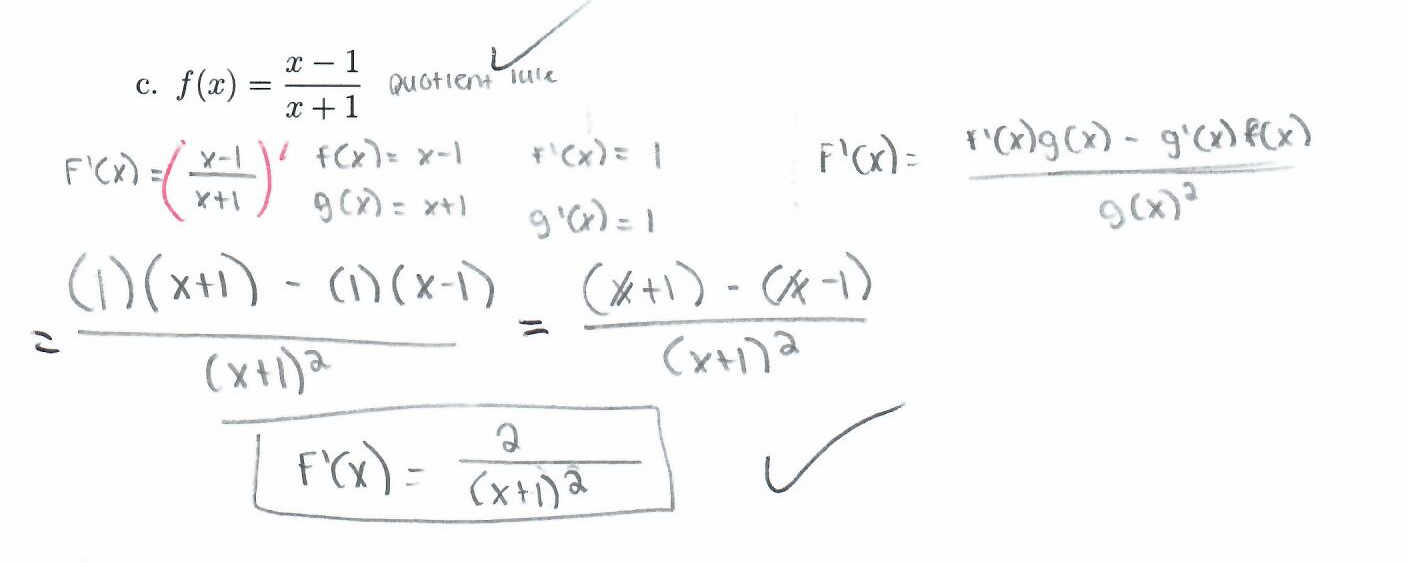 c. f(x) = (x − 1)/(x + 1) Quotient rule
F'(x) = ((x-1)/(x+1))' f(x) = x-1 f'(x) = 1 F'(x) = (f'(x)g(x) - g'(x)f(x))/g(x)²
g(x) = x+1 g'(x) = 1
= ((1)(x+1) - (1)(x-1))/(x+1)² = ((x+1) - (x-1))/(x+1)²
F'(x) = 2/(x+1)²